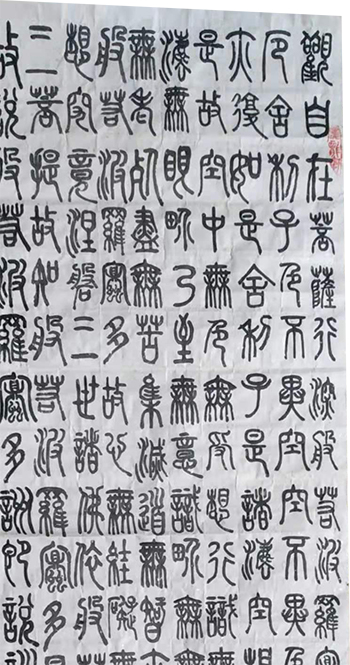 觀自在菩薩行深般若波羅蜜
厄舍利子色不異空空不異色
亦復如是舍利子是諸法空相
是故空中無色無受想行識無
法無眼界乃至無意識界無無
無老死盡無苦集滅道無智亦
般若波羅蜜多故心無罣礙無
想究竟涅槃三世諸佛依般若
三菩提故知般若波羅蜜多是
故說般若波羅蜜多咒即說